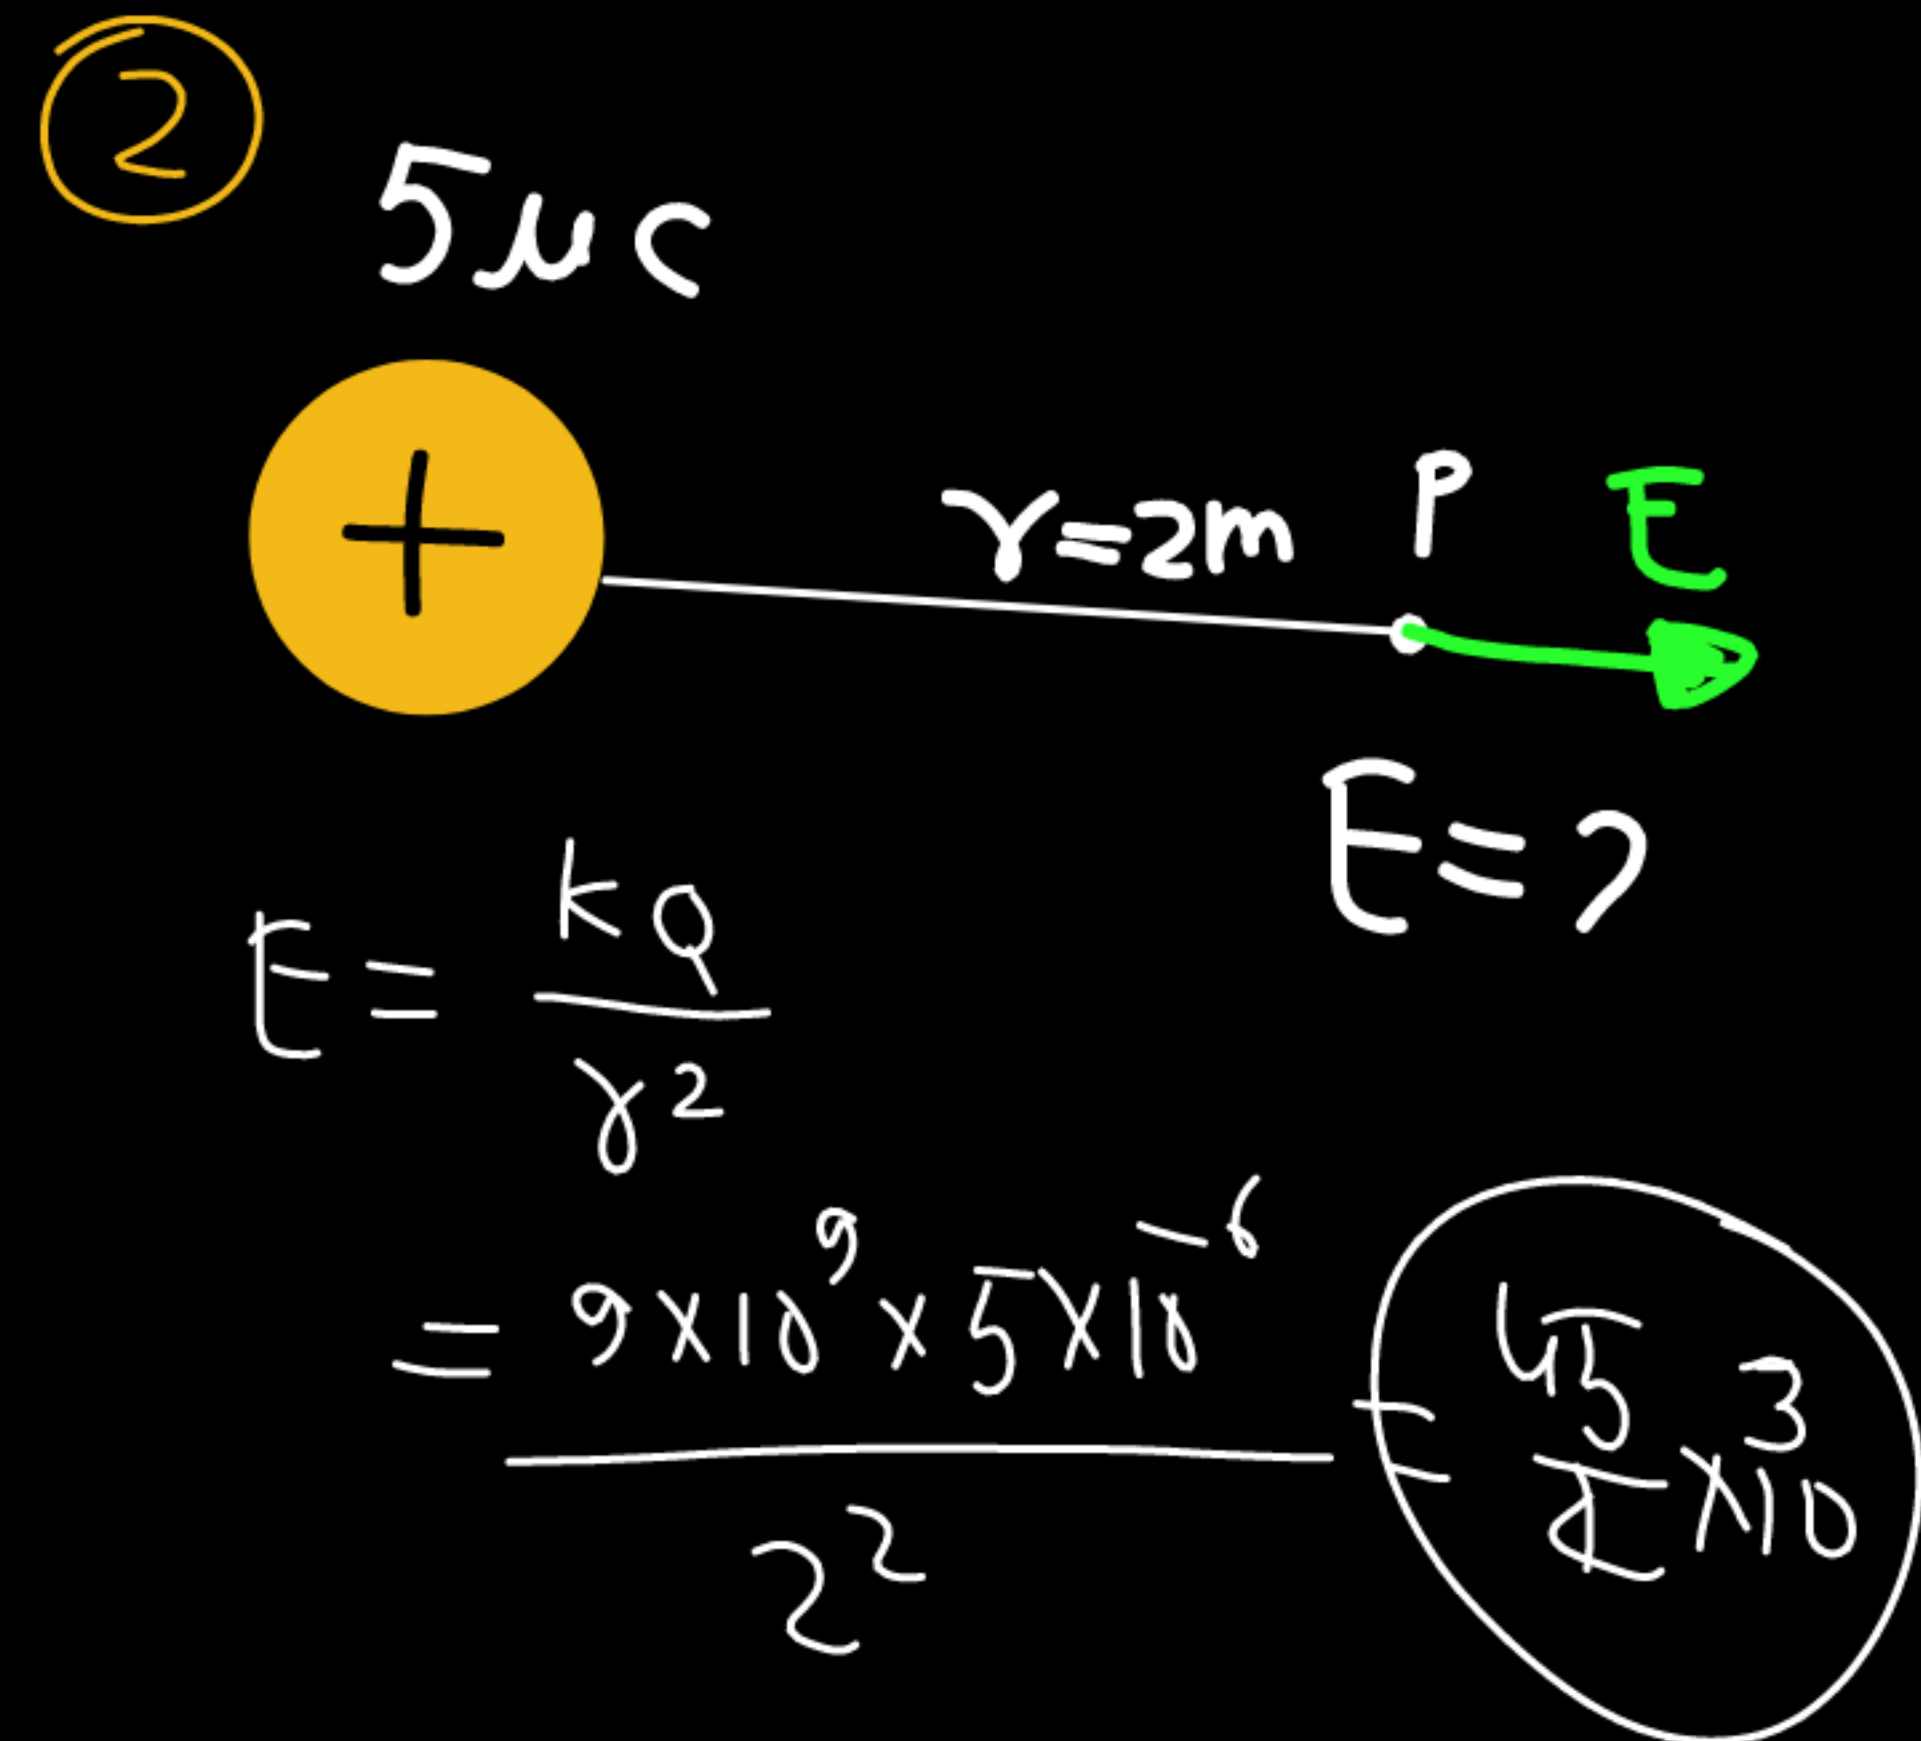 2
5μc
+
r=2m P E
E=?
E = kQ / r²
= 9×10⁹×5×10⁻⁶ / 2² = 45/4 ×10³